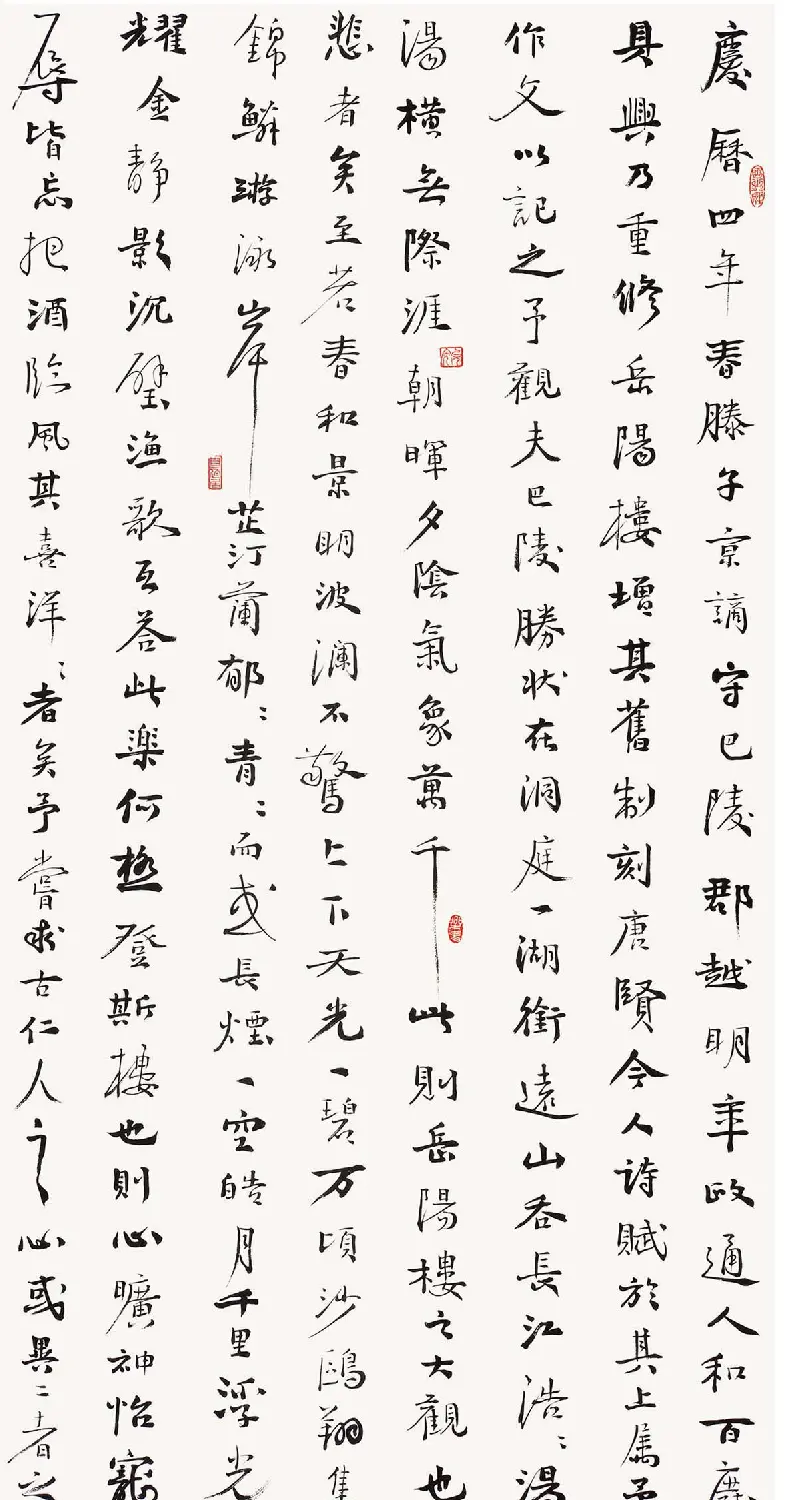 慶曆四年春滕子京謫守巴陵郡越明年政通人和百廢
具興乃重修岳陽樓增其舊制刻唐賢今人詩賦於其上属予
作文以記之予觀夫巴陵勝状在洞庭一湖銜遠山吞長江浩〻湯
湯橫無際涯朝暉夕陰氣象萬千此則岳陽樓之大觀也
悲者矣至若春和景明波瀾不驚上下天光一碧万頃沙鷗翔集
錦鱗游泳岸芷汀蘭郁〻青〻而或長煙一空皓月千里浮光
耀金靜影沉璧漁歌互答此楽何極登斯樓也則心曠神怡寵
辱皆忘把酒臨風其喜洋〻者矣予嘗求古仁人之心或異二者之